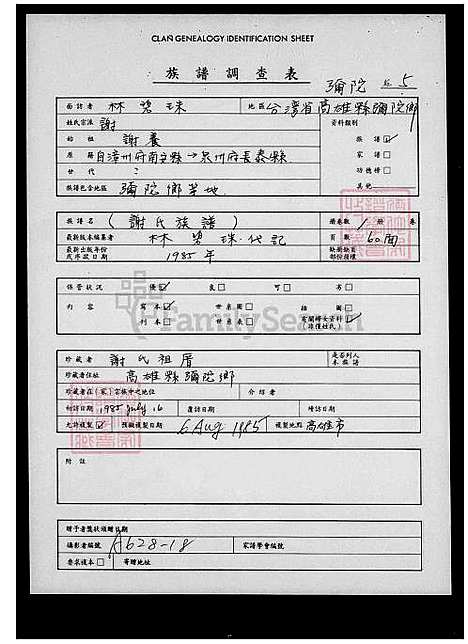 CLAN GENEALOGY IDENTIFICATION SHEET
族譜調查表 彌陀 5
面訪者 林碧珠 地區 台灣省高雄縣彌陀鄉
姓氏宗派 謝 資料類別
始祖 謝養 族譜☑
原籍 自漳州府南立縣→泉州府長泰縣 家譜□
世代 : 功德榜□
族譜包含地區 彌陀鄉某地 其他
族譜名 (謝氏族譜) 總卷數 1 缺 卷
最新版本編纂者 林碧珠代記 頁數 60面
最新出版年份或序跋日期 1985年 缺卷缺面部份應補
保管狀況 優☑ 良□ 可□ 劣□
內容 寫本☑ 世系圖□ 插圖□
刊本□ 世系表□ 有關婦女資料☑(非僅姓氏)
FamilySearch
珍藏者 謝氏祖厝 是否列入本族譜
珍藏者住址 高雄縣彌陀鄉
珍藏者在(家)宗族中之地位 介紹者
初訪日期 1985 July 16 覆訪日期 續訪日期
允許複製☑ 預擬複製日期 6 Aug 1985 複製地點 高雄市
附註
贈予者獎狀頒贈日期
攝影者編號 A628-18 家譜學會編號
要求複本□ 寄贈地址